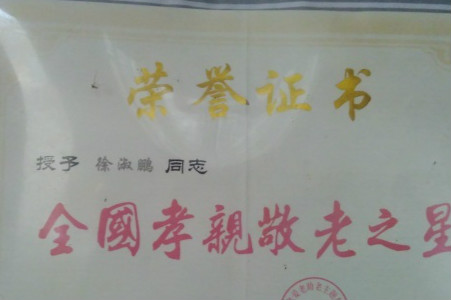 荣誉证书
授予 徐淑鹏 同志
全國孝親敬老之星